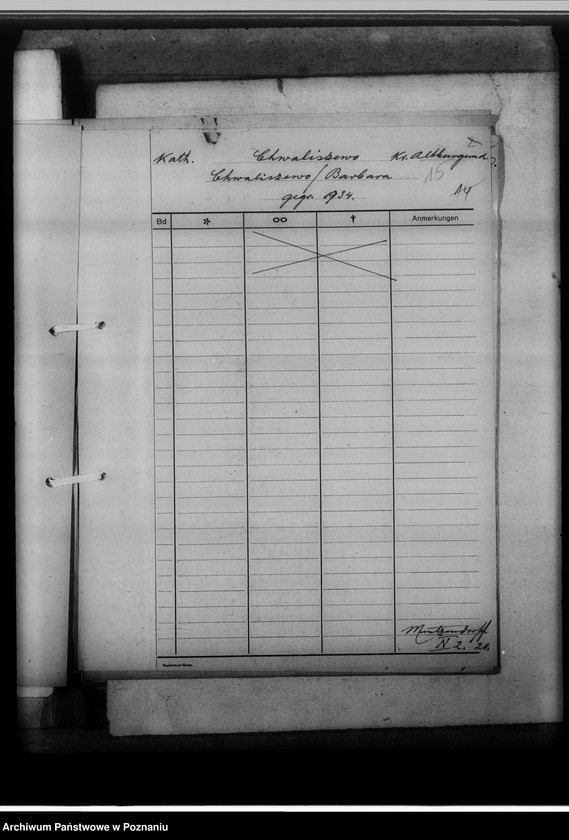 Kath. Chwaliszewo Kr. Altburgund
Chwaliszewo / Barbara 15
gegr. 1934. 14
Bd * ∞ † Anmerkungen
Mentzendorff
N 2. 21.
Archiwum Państwowe w Poznaniu